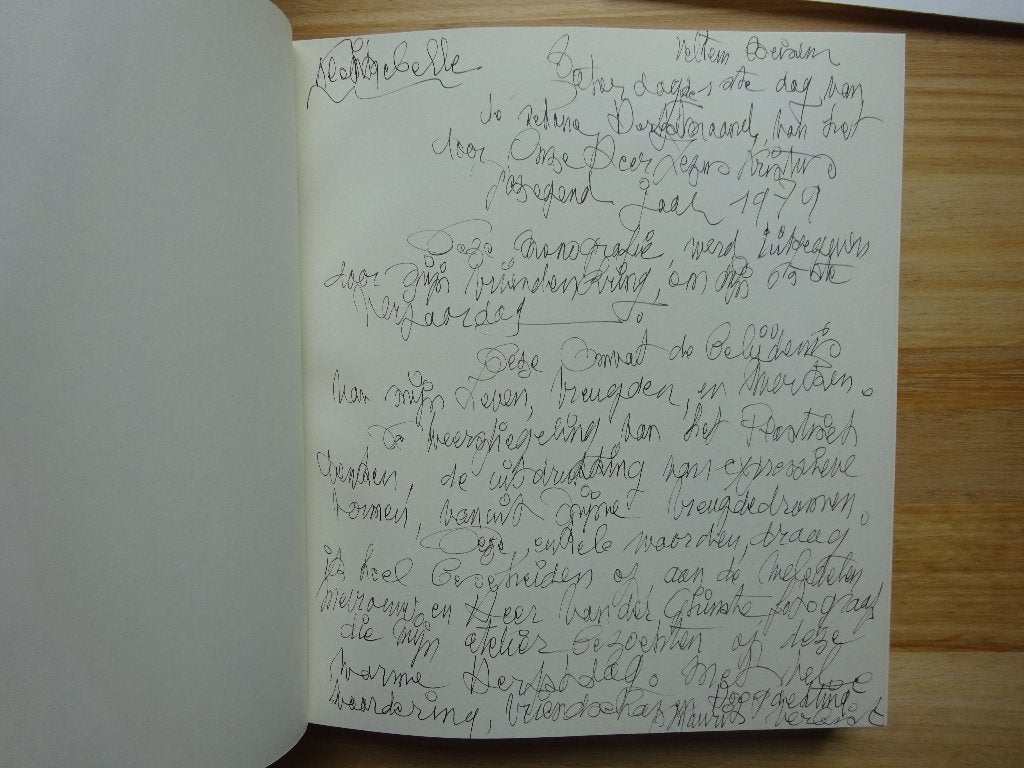 Veltem Beisem
Zaterdag de ste dag van
de Herfstmaand, van het
door Onze Heer Jezus Kristus
gezegend jaar 1979
Deze monografie, werd uitgegeven
door mijn vriendenkring, on mijn ste
Verjaardag
Deze omvat de belijdenis
van mijn Leven, vreugden, en smarten.
De weerspiegeling van het Plastisch
denken, de uitdrukking van expressieve
vormen, vanuit mijne vreugdedromen.
Deze, enkele woorden, draag
ik heel bescheiden op, aan de
mevrouw, en Heer van der Ghinste, fotograaf
die mijn atelier bezochten op deze
warme Herfstdag. Met vele
waardering, vriendschap, hoogachting